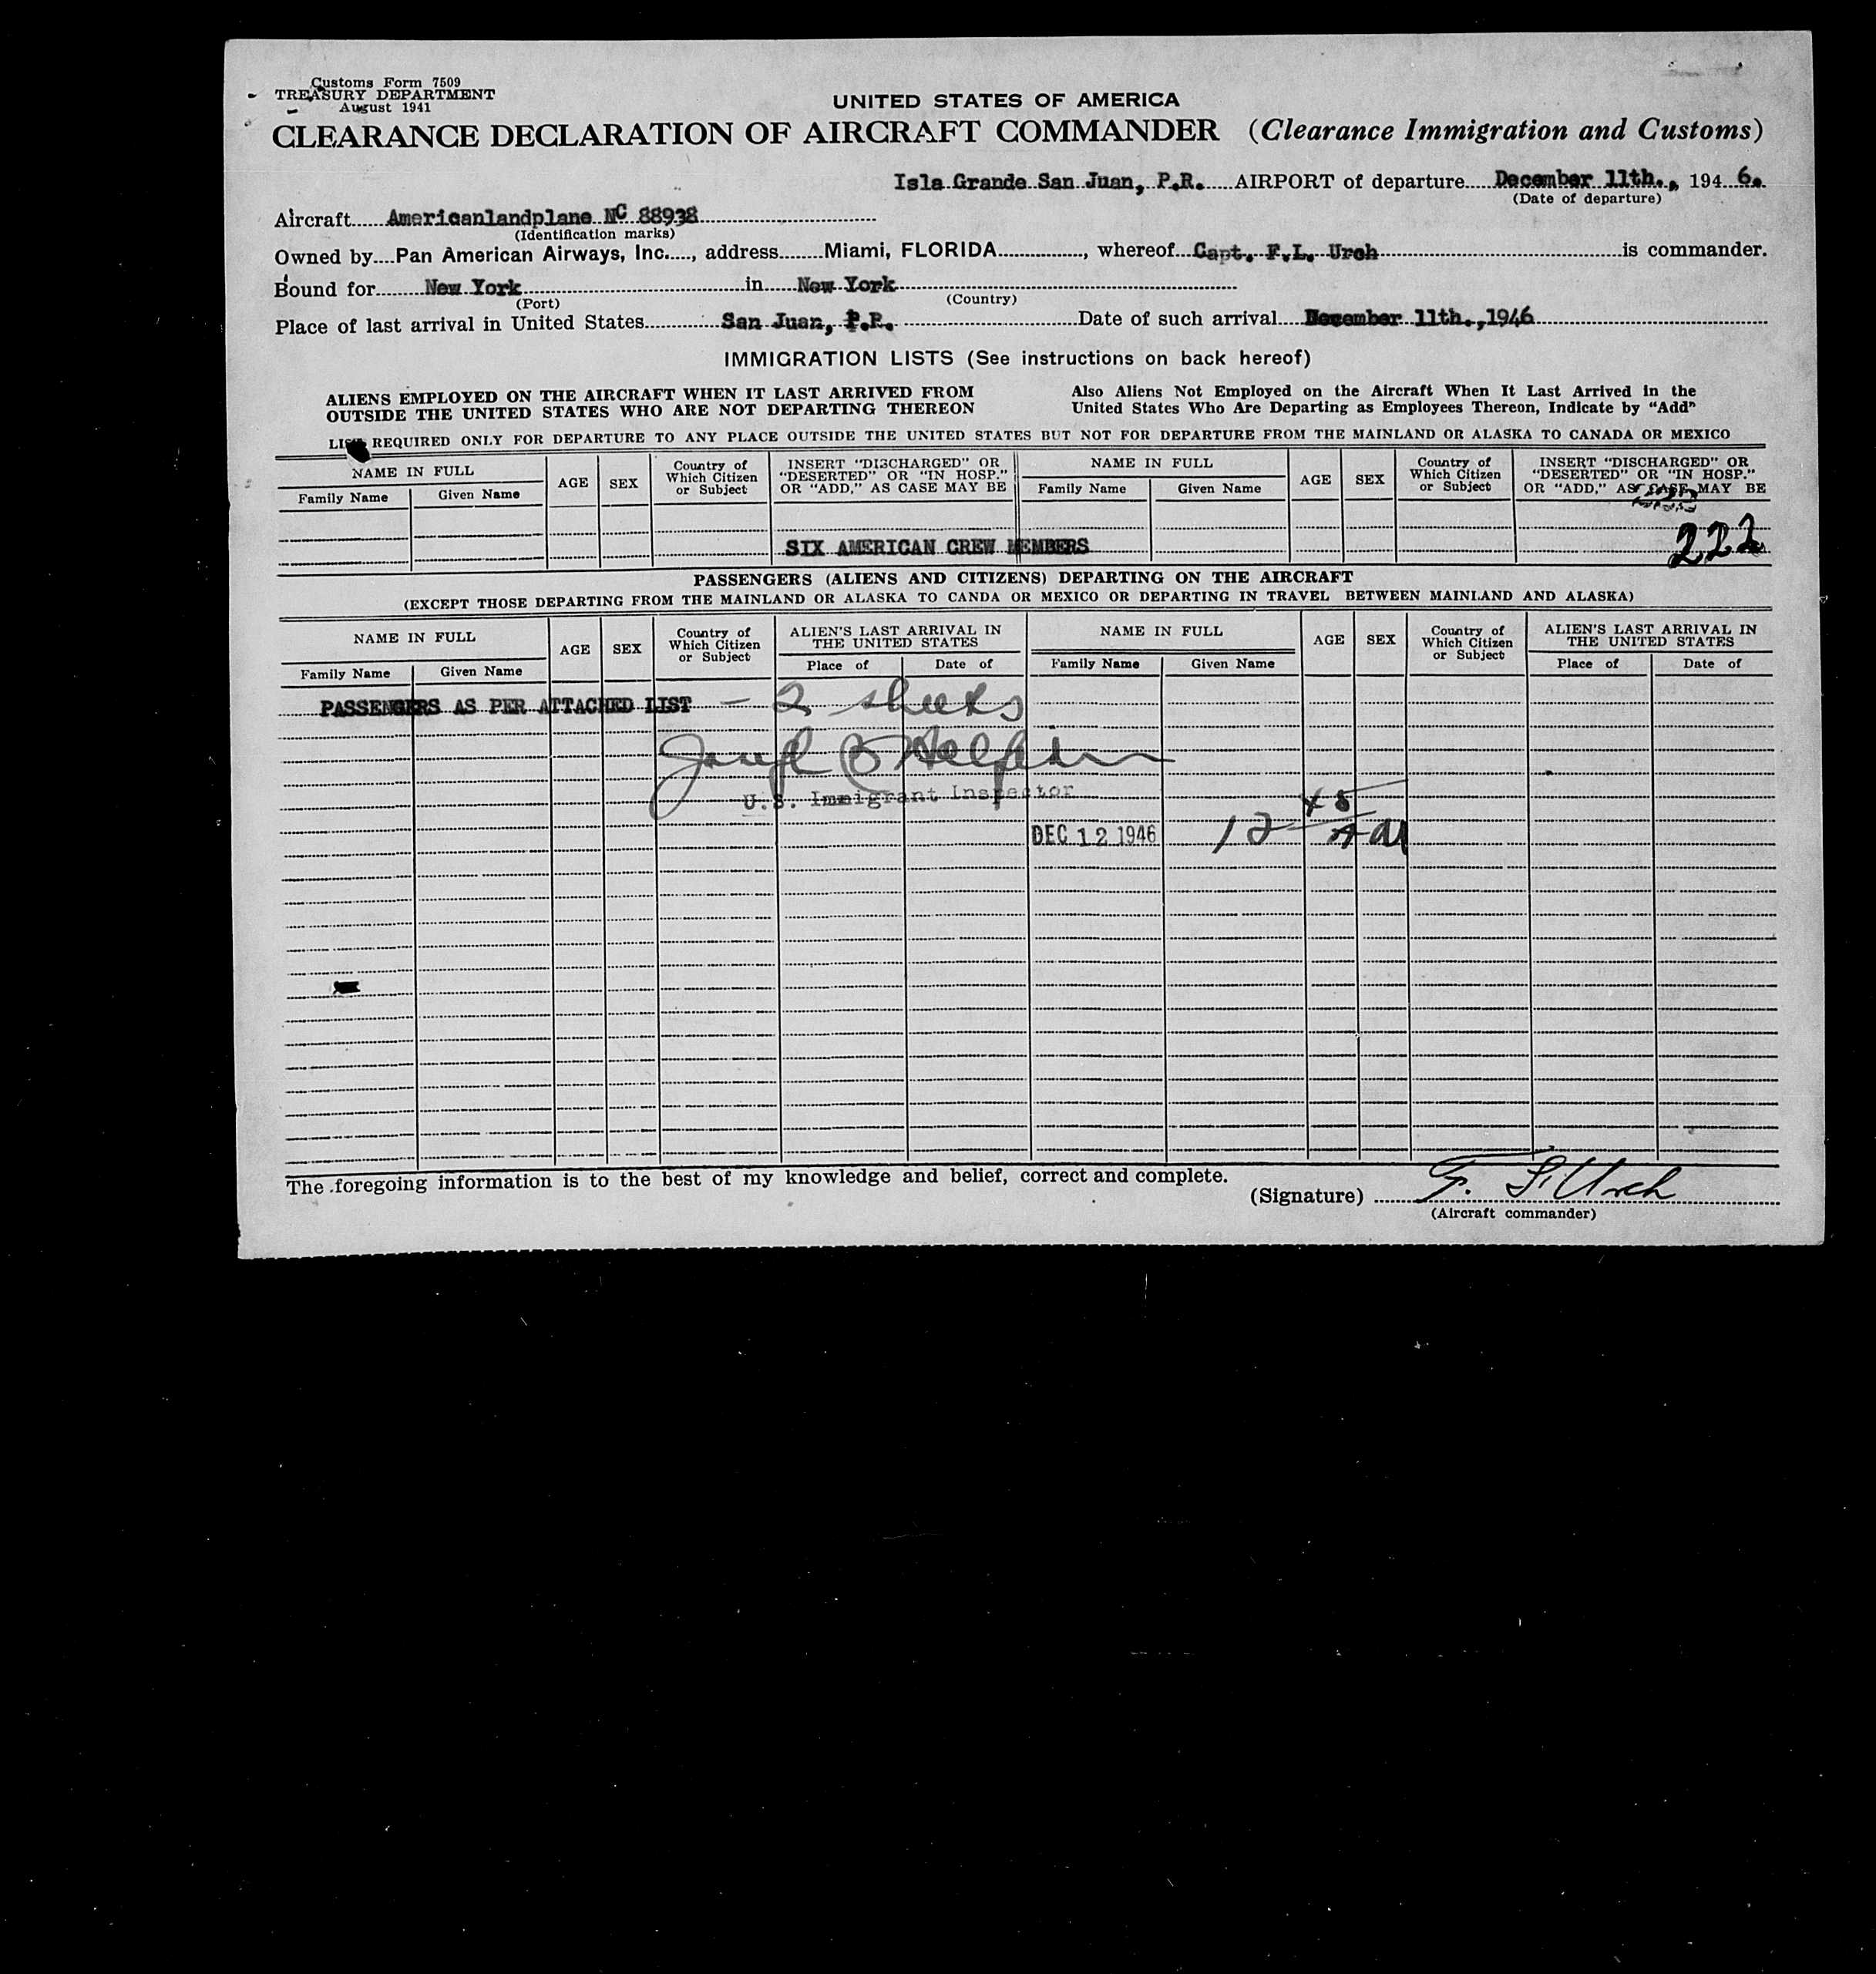 Customs Form 7509
TREASURY DEPARTMENT
August 1941
UNITED STATES OF AMERICA
CLEARANCE DECLARATION OF AIRCRAFT COMMANDER (Clearance Immigration and Customs)
Isla Grande San Juan, P.R. AIRPORT of departure December 11th., 194 6.
(Date of departure)
Aircraft Americanlandplane NC 88938
(Identification marks)
Owned by Pan American Airways, Inc., address Miami, FLORIDA, whereof Capt. F.L. Urch is commander.
Bound for New York in New York
(Port) (Country)
Place of last arrival in United States San Juan, P.R. Date of such arrival December 11th.,1946
IMMIGRATION LISTS (See instructions on back hereof)
ALIENS EMPLOYED ON THE AIRCRAFT WHEN IT LAST ARRIVED FROM
OUTSIDE THE UNITED STATES WHO ARE NOT DEPARTING THEREON
Also Aliens Not Employed on the Aircraft When It Last Arrived in the
United States Who Are Departing as Employees Thereon, Indicate by “Add”
LIST REQUIRED ONLY FOR DEPARTURE TO ANY PLACE OUTSIDE THE UNITED STATES BUT NOT FOR DEPARTURE FROM THE MAINLAND OR ALASKA TO CANADA OR MEXICO
NAME IN FULL
Family Name Given Name
AGE SEX
Country of
Which Citizen
or Subject
INSERT “DISCHARGED” OR
“DESERTED” OR “IN HOSP.”
OR “ADD,” AS CASE MAY BE
NAME IN FULL
Family Name Given Name
AGE SEX
Country of
Which Citizen
or Subject
INSERT “DISCHARGED” OR
“DESERTED” OR “IN HOSP.”
OR “ADD,” AS CASE MAY BE
222
SIX AMERICAN CREW MEMBERS
PASSENGERS (ALIENS AND CITIZENS) DEPARTING ON THE AIRCRAFT
(EXCEPT THOSE DEPARTING FROM THE MAINLAND OR ALASKA TO CANDA OR MEXICO OR DEPARTING IN TRAVEL BETWEEN MAINLAND AND ALASKA)
NAME IN FULL
Family Name Given Name
AGE SEX
Country of
Which Citizen
or Subject
ALIEN'S LAST ARRIVAL IN
THE UNITED STATES
Place of Date of
NAME IN FULL
Family Name Given Name
AGE SEX
Country of
Which Citizen
or Subject
ALIEN'S LAST ARRIVAL IN
THE UNITED STATES
Place of Date of
PASSENGERS AS PER ATTACHED LIST - 2 sheets
Joseph
U.S. Immigrant Inspector
DEC 12 1946 12 45 AM
The foregoing information is to the best of my knowledge and belief, correct and complete.
(Signature) F. L. Urch
(Aircraft commander)